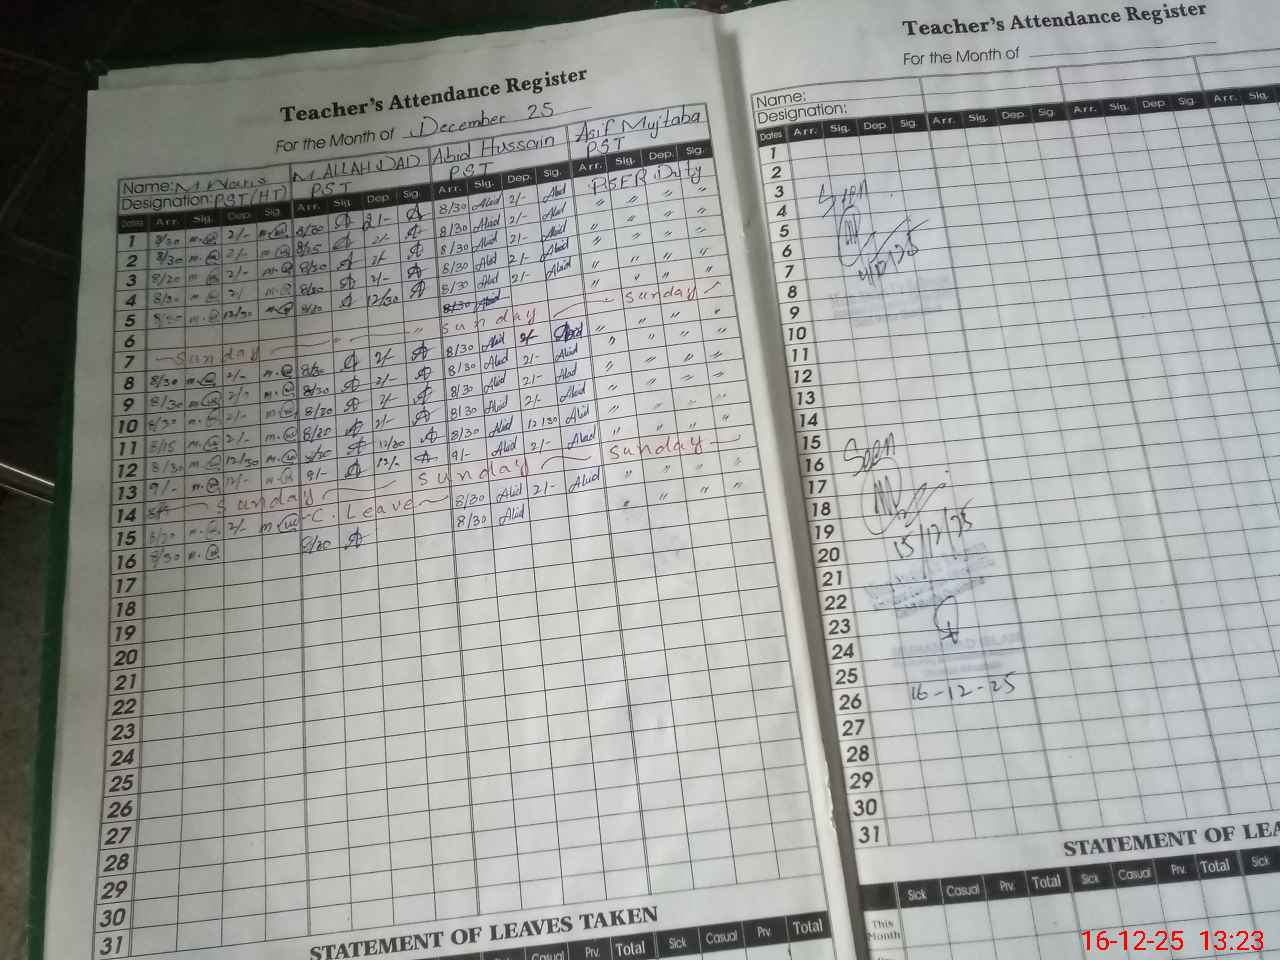 Teacher's Attendance Register
For the Month of December 25
Name: M. Waris M ALLAH DAD Abid Hussain Asif Mujtaba
Designation: PST(HT) PST PST PST
Dates Arr. Sig. Dep. Sig. Arr. Sig. Dep. Sig. Arr. Sig. Dep. Sig. Arr. Sig. Dep. Sig.
1 8/30 m. 2/- 8/30 2/- 8/30 Abid 2/- Abid PSER Duty
2 8/30 m. 2/- 2/- 8/30 Abid 2/- Abid " " " "
3 8/20 m. 2/- 8/30 2/- 8/30 Abid 2/- Abid " " " "
4 8/30 m. 2/- 8/30 2/- 8/30 Abid 2/- Abid " " " "
5 m. 12/30 8/20 12/30 8/30 Abid 2/- Abid " " " "
6 8/30 Abid
7 Sunday " Sunday Sunday
8 8/30 m. 2/- 8/30 2/- 8/30 Abid 2/- Abid " " " "
9 8/30 m. 2/- 8/30 2/- 8/30 Abid 2/- Abid " " " "
10 8/30 m. 2/- 8/20 2/- 8/30 Abid 2/- Abid " " " "
11 8/15 m. 2/- 8/20 2/- 8/30 Abid 2/- Abid " " " "
12 8/30 m. 12/30 12/30 8/30 Abid 12/30 Abid " " " "
13 9/- m. 12/- 9/- 12/- 9/- Abid 2/- Abid " " " "
14 Sunday Sunday Sunday
15 8/20 m. 2/- C. Leave 8/30 Abid 2/- Abid " " " "
16 8/30 m. 8/20 8/30 Abid " " " "
17
18
19
20
21
22
23
24
25
26
27
28
29
30
31
STATEMENT OF LEAVES TAKEN
Casual Prv. Total Sick Casual Prv. Total
Teacher's Attendance Register
For the Month of
Name:
Designation:
Dates Arr. Sig. Dep. Sig. Arr. Sig. Dep. Sig. Arr. Sig. Dep. Sig. Arr. Sig.
1
2
3
Seen
4
5
6
7
8
9
10
11
12
13
14
15
Seen
16
17
18
19
15/12/25
20
21
22
23
24
25
16-12-25
26
27
28
29
30
31
STATEMENT OF LEA
Sick Casual Prv. Total Sick Casual Prv. Total Sick
This
Month
16-12-25 13:23